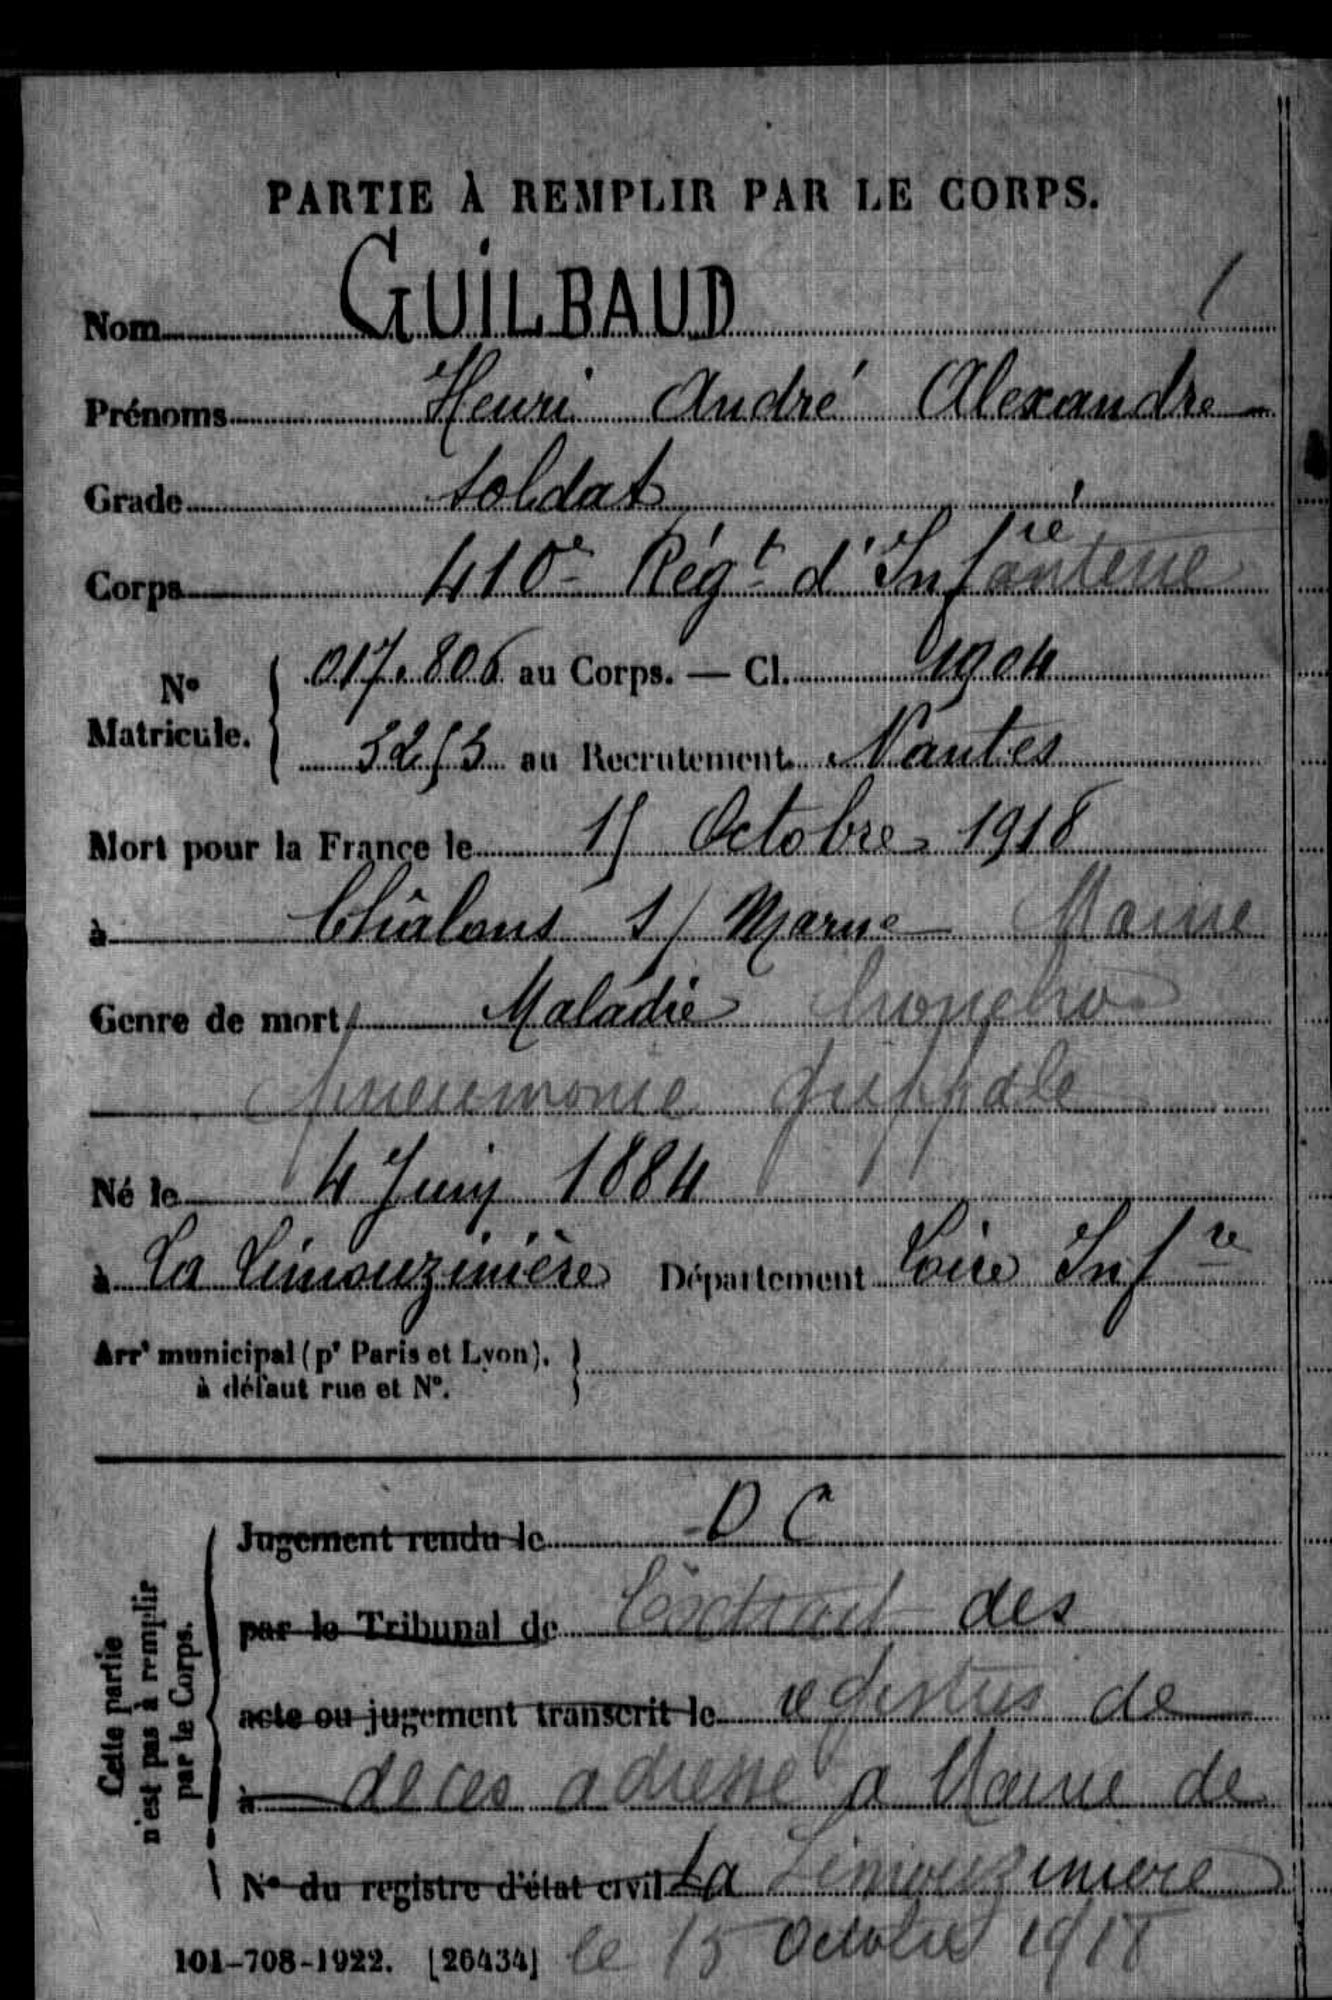 PARTIE À REMPLIR PAR LE CORPS.
Nom GUILBAUD
Prénoms Henri André Alexandre
Grade Soldat
Corps 410e Régt d'Infanterie
No Matricule. { 017.806 au Corps. — Cl. 1904
3253 au Recrutement Nantes
Mort pour la France le 15 Octobre 1918
à Châlons s/ Marne Marne
Genre de mort Maladie broncho
pneumonie grippale
Né le 4 Juin 1884
à La Limouzinière Département Loire Infre
Arrt municipal (pr Paris et Lyon), }
à défaut rue et N°.
Cette partie
n'est pas à remplir
par le Corps.
Jugement rendu le D C
par le Tribunal de Extrait des
acte ou jugement transcrit le registres de
à deces adresse a Mairie de
N° du registre d'état civil La Limouziniere
101-708-1922. [26434] le 15 Octobre 1918